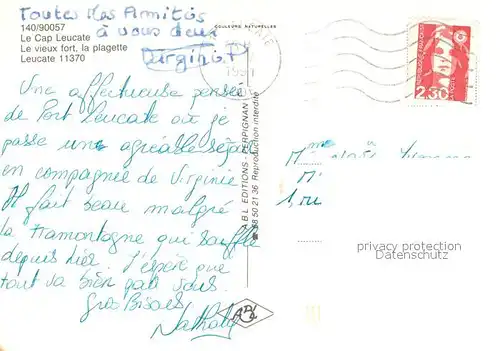 Toutes Mes Amitiés
à vous deux
Virginie.P
140/90057
Le Cap Leucate
Le vieux fort, la plagette
Leucate 11370
COULEURS NATURELLES
Une affectueuse pensée
de Port Leucate où je
passe un agréable séjour
en compagnie de Virginie
Il fait beau malgré
la Tramontagne qui souffle
depuis hier. J'espère que
tout va bien pour vous.
Gros Bisous
Nathaly
B L EDITIONS - PERPIGNAN
68 50 21 36 Reproduction interdite
2,30
Mme
1, rue
privacy protection
Datenschutz